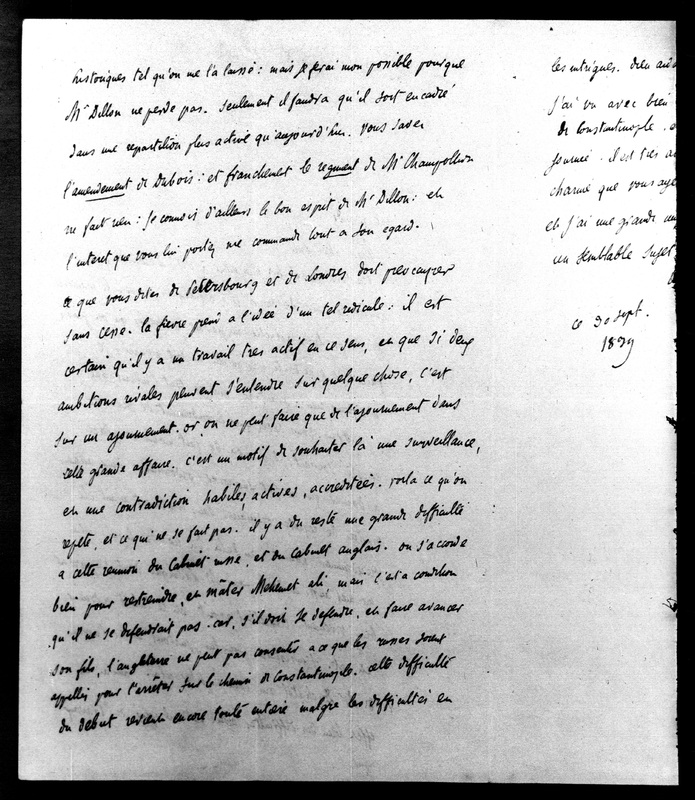 historiques tel qu'on me l'a laissé : mais je ferai mon possible pour que
Mr Dillon ne perde pas. seulement il faudra qu'il soit encadré
dans une repartition plus active qu'aujourd'hui. vous savez
l'amendement de Dubois : et franchement le regment de Mr Champollion
ne fait rien : je connois d'ailleurs le bon esprit de Mr Dillon : et
l'interet que vous lui portez me commande tout a son egard.
ce que vous dites de Petersbourg et de Londres doit preoccuper
sans cesse. la fievre prend a l'idée d'un tel ridicule : il est
certain qu'il y a un travail tres actif en ce sens, et que si deux
ambitions rivales peuvent s'entendre sur quelque chose, c'est
sur un ajournement. or, on ne peut faire que de l'ajournement dans
cette grande affaire. c'est un motif de souhaiter là une surveillance,
et une contradiction habiles, actives, accreditées. voila ce qu'on
repete, et ce qui ne se fait pas. il y a du reste une grande difficulté
a cette reunion du Cabinet russe, et du Cabinet anglais. on s'accorde
bien pour restreindre, et mâter Mehemet ali, mais c'est a condition
qu'il ne se defendrait pas. car, s'il doit se defendre, et faire avancer
son fils, l'angleterre ne peut pas consentir a ce que les russes soient
appellés pour l'arrêter sur le chemin de Constantinople. cette difficulté
du debut revient encore toute entiere malgre les difficultés en
les intrigues. Dieu
j'ai vu avec bien
de Constantinople.
journée. il est tres
charmé que vous
et j'ai une grande
un semblable sujet
ce 30 sept.
1839